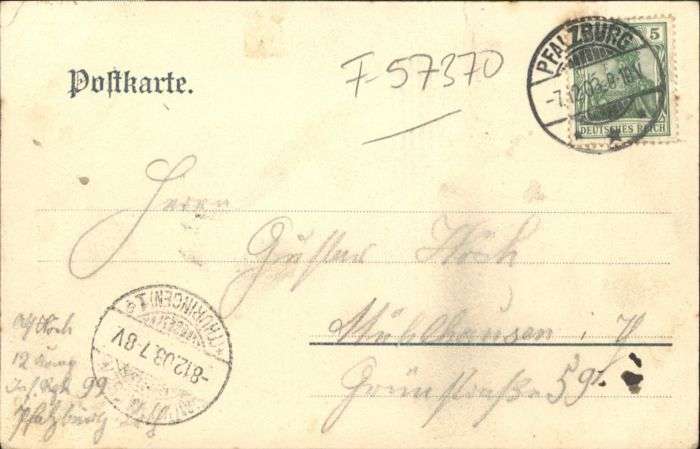 Postkarte.
F-57370
PFALZBURG
-7.12.03.8-10V.
5
DEUTSCHES REICH
Herrn
Gustav Koch
Mühlhausen i. Th
Grünstraße 59I.
(THÜRINGEN) 1.
-8.12.03.7-8V
Koch
12 Komp
Inf. Rgt. 99
Pfalzburg